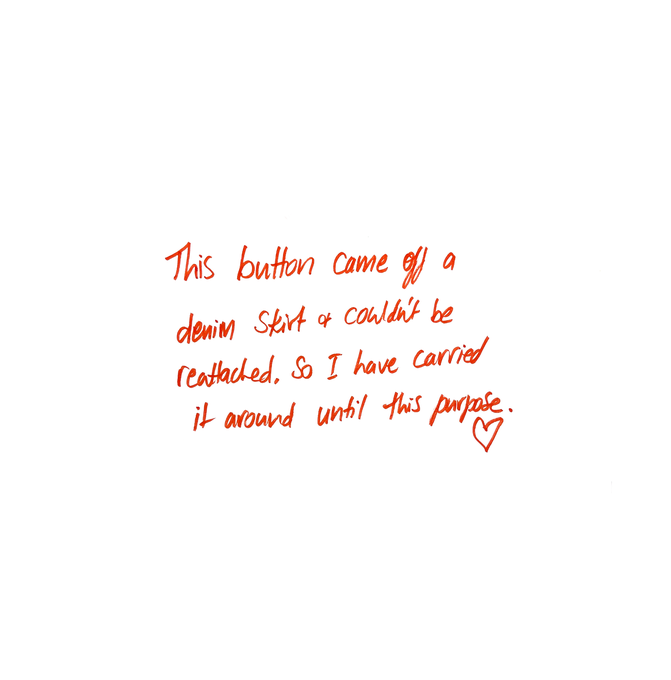 This button came off a
denim skirt & couldn't be
reattached. So I have carried
it around until this purpose.